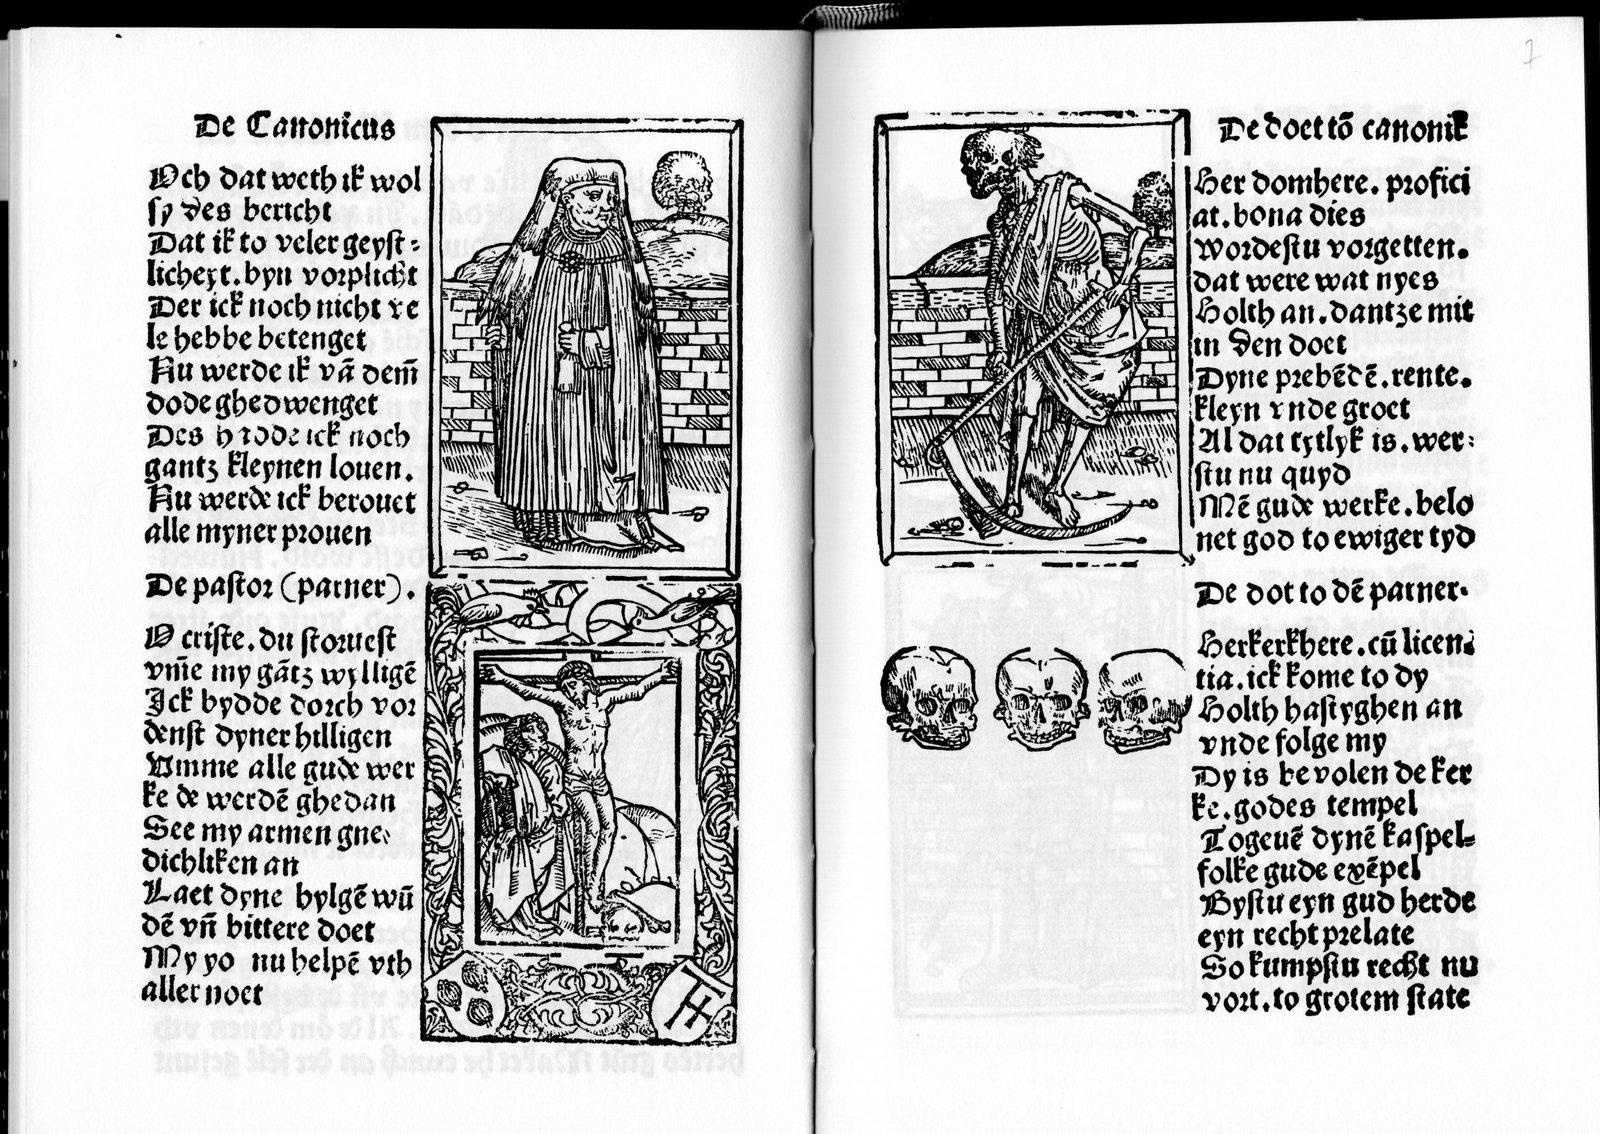 De Canonicus
Och dat weth ik wol
sy des bericht
Dat ik to veler geyst⸗
licheyt. byn vorplicht
Der ick noch nicht ve
le hebbe betenget
Nu werde ik vā dem̄
dode ghedwenget
Des hadde ick noch
gantz kleynen louen.
Nu werde ick berouet
alle myner prouen
De pastor (parner).
O criste. du storuest
vm̄e my gātz wylligē
Ick bydde dorch vor
denst dyner hilligen
Vmme alle gude wer
ke de werdē ghedan
See my armen gne⸗
dichliken an
Laet dyne hylgē wū
dē vn̄ bittere doet
My yo nu helpē vth
aller noet
7
De doet tō canonik
Her domhere. profici
at. bona dies
Wordestu vorgetten.
dat were wat nyes
Holth an. dantze mit
in den doet
Dyne prebēdē. rente.
kleyn vnde groet
Al dat tytlyk is. wer⸗
stu nu quyd
Mē gude werke. belo
net god to ewiger tyd
De dot to dē parner.
Herkerkhere. cū licen⸗
tia. ick kome to dy
Holth hastyghen an
vnde folge my
Dy is bevolen de ker
ke. godes tempel
Togeuē dynē kaspel⸗
folke gude exēpel
Bystu eyn gud herde
eyn recht prelate
So kumpstu recht nu
vort. to grotem state